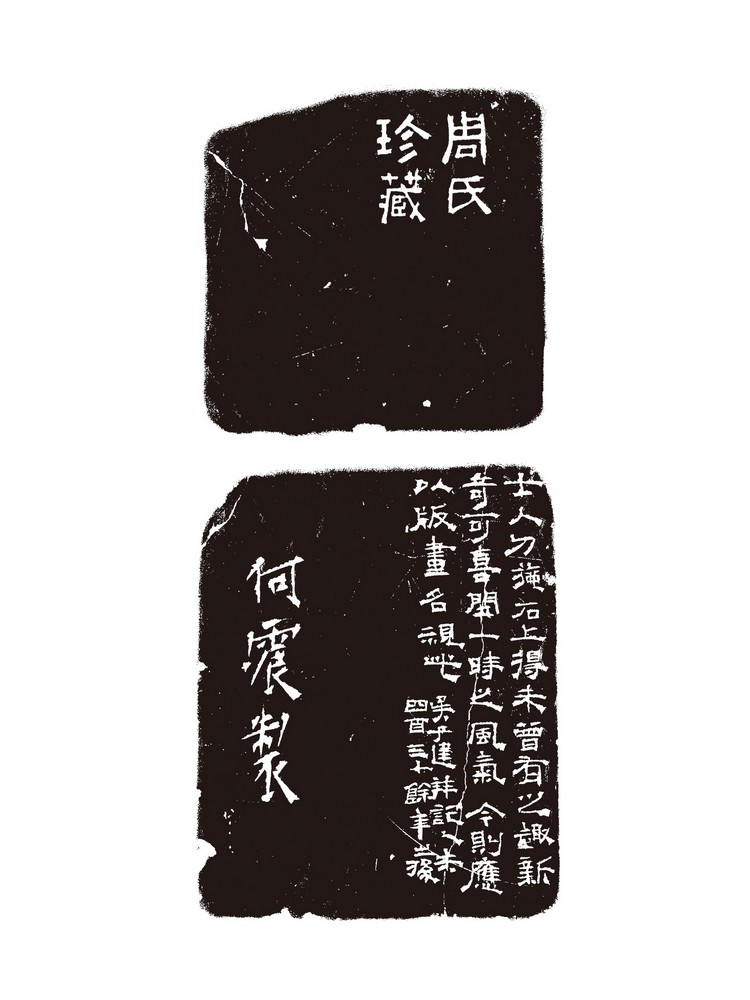 周氏
珍藏
士人刀施石上得未曾有之趣新
奇可喜開一時之風氣今則應
以版畫名視此
吴子進并記
四百三十餘年
何震製